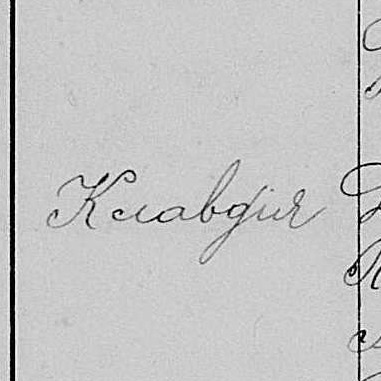 Клавдія